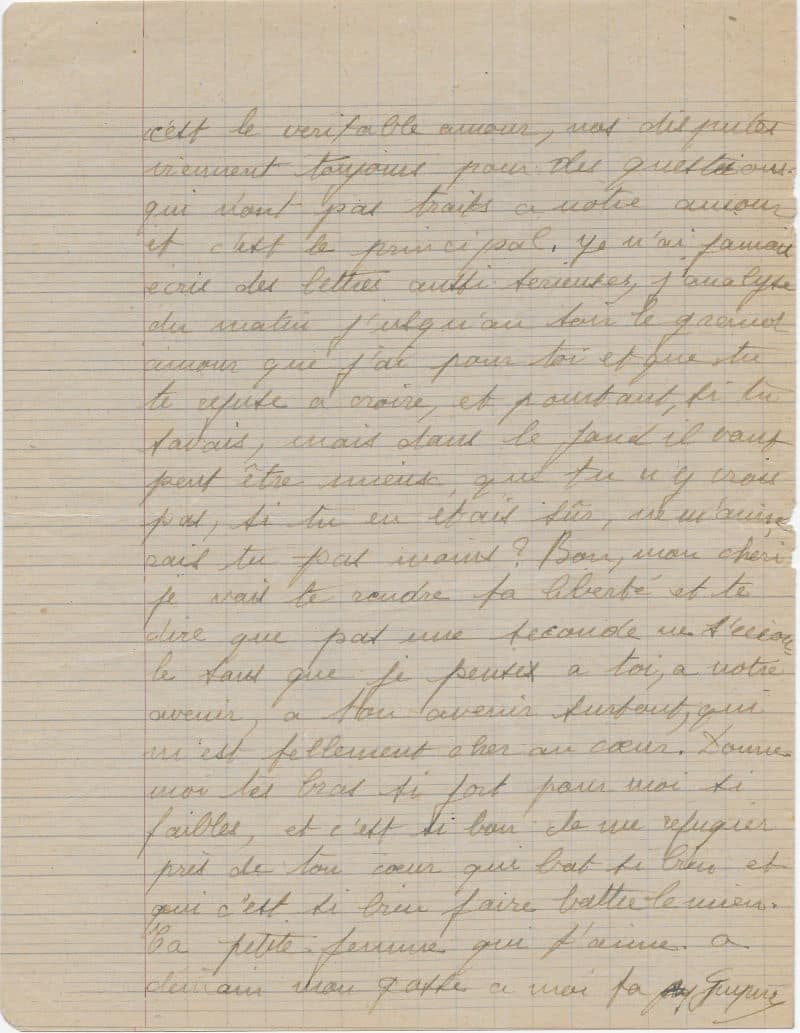 c'est le veritable amour, nos disputes
viennent toujours pour des questions
qui n'ont pas traits a notre amour
et c'est le principal. Je n'ai jamais
ecris des lettres aussi serieuses, j'analyse
du matin j'usqu'au soir le grand
amour que j'ai pour toi et que tu
te refuse a croire, et pourtant, si tu
savais, mais dans le fond il vaut
peut être mieux, que tu n'y crois
pas, si tu en étais sûr, ne m'aime
rais tu pas moins ? Bon, mon cheri
je vais te rendre ta liberté et te
dire que pas une seconde ne s'ecou
le sans que je penses a toi, a notre
avenir, a ton avenir surtout, qui
m'est tellement cher au cœur. Donne
moi tes bras si fort pour moi si
faibles, et c'est si bon de me refugier
près de ton cœur qui bat si bien et
qui c'est si bien faire battre le mien.
Ta petite femme qui t'aime. a
demain mon a moi ta